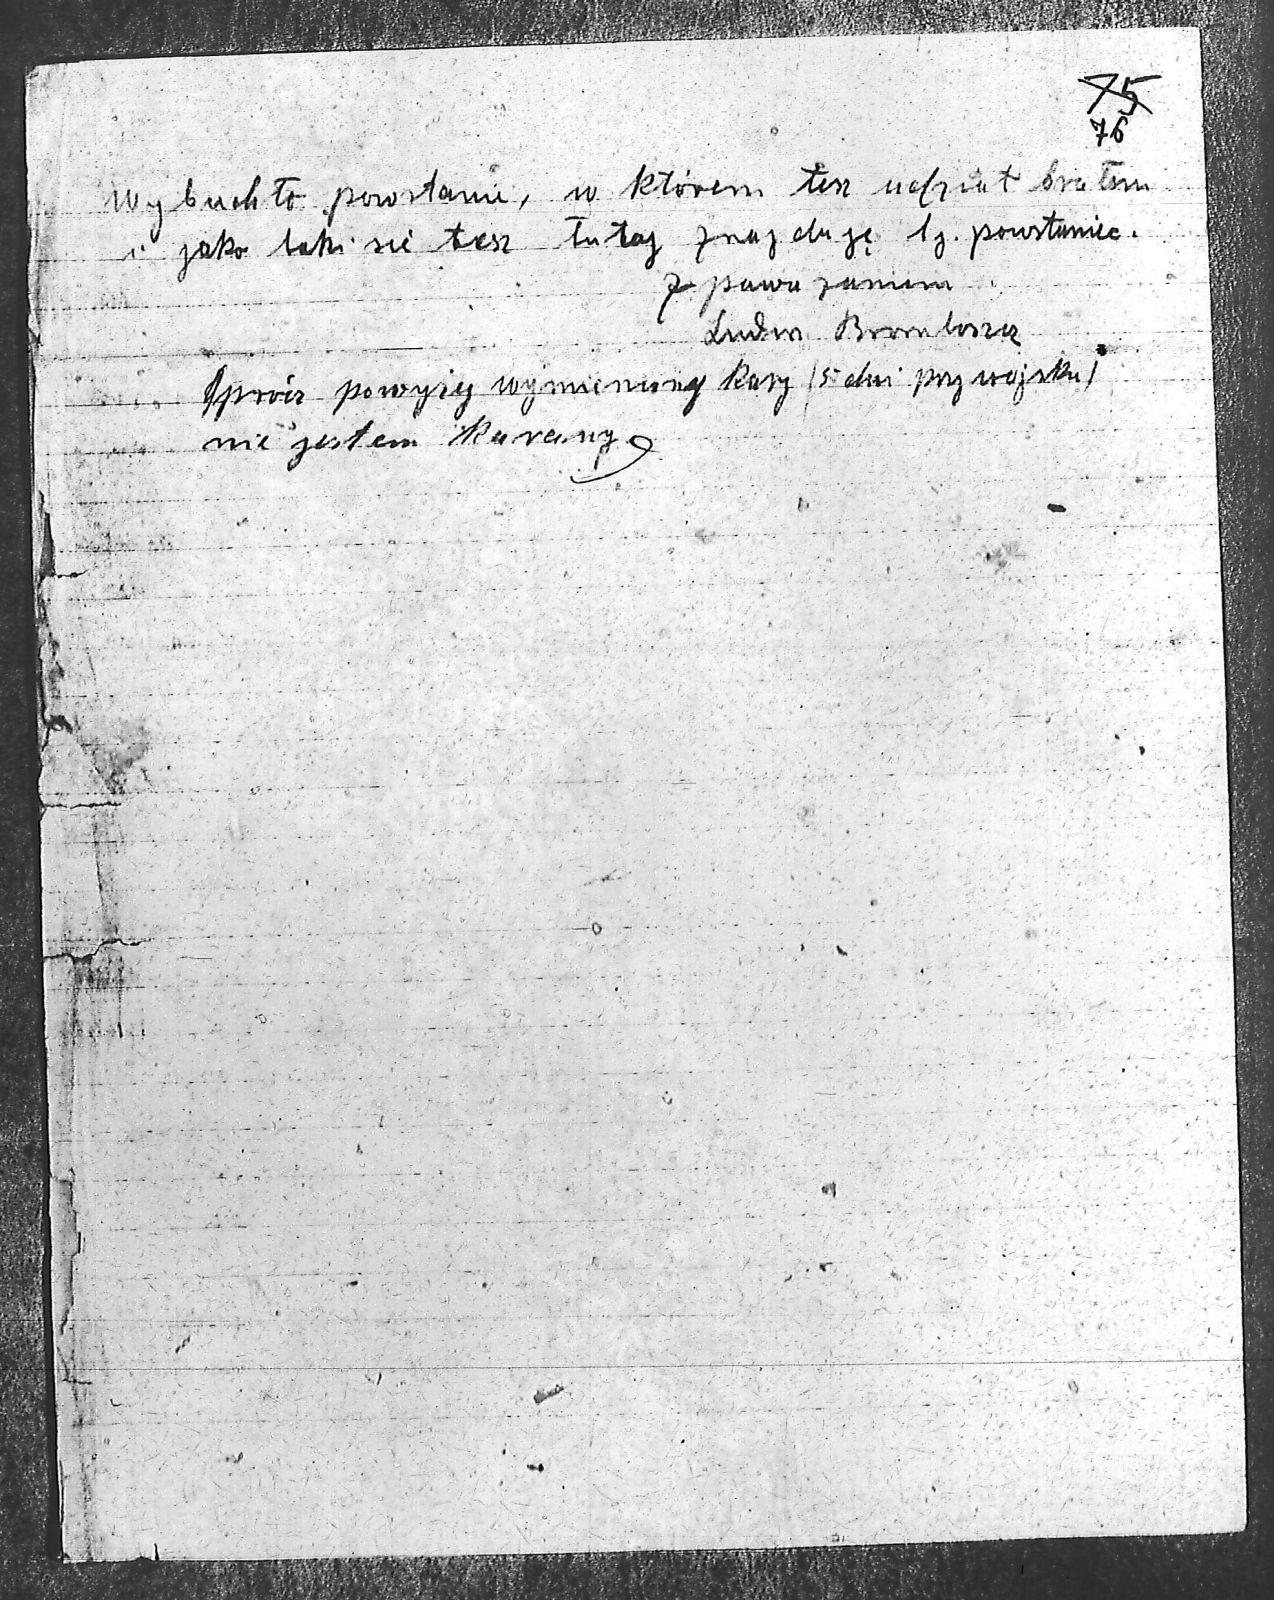 75
76
Wybuchło powstanie, w którem tesz udział brałem
i jako taki sie tesz tutaj znajduję tz. powstaniec.
Z poważaniem
Ludwr
Oprócz powyżej wymienionej kary /5 dni przy wojsku/
nie jestem karany